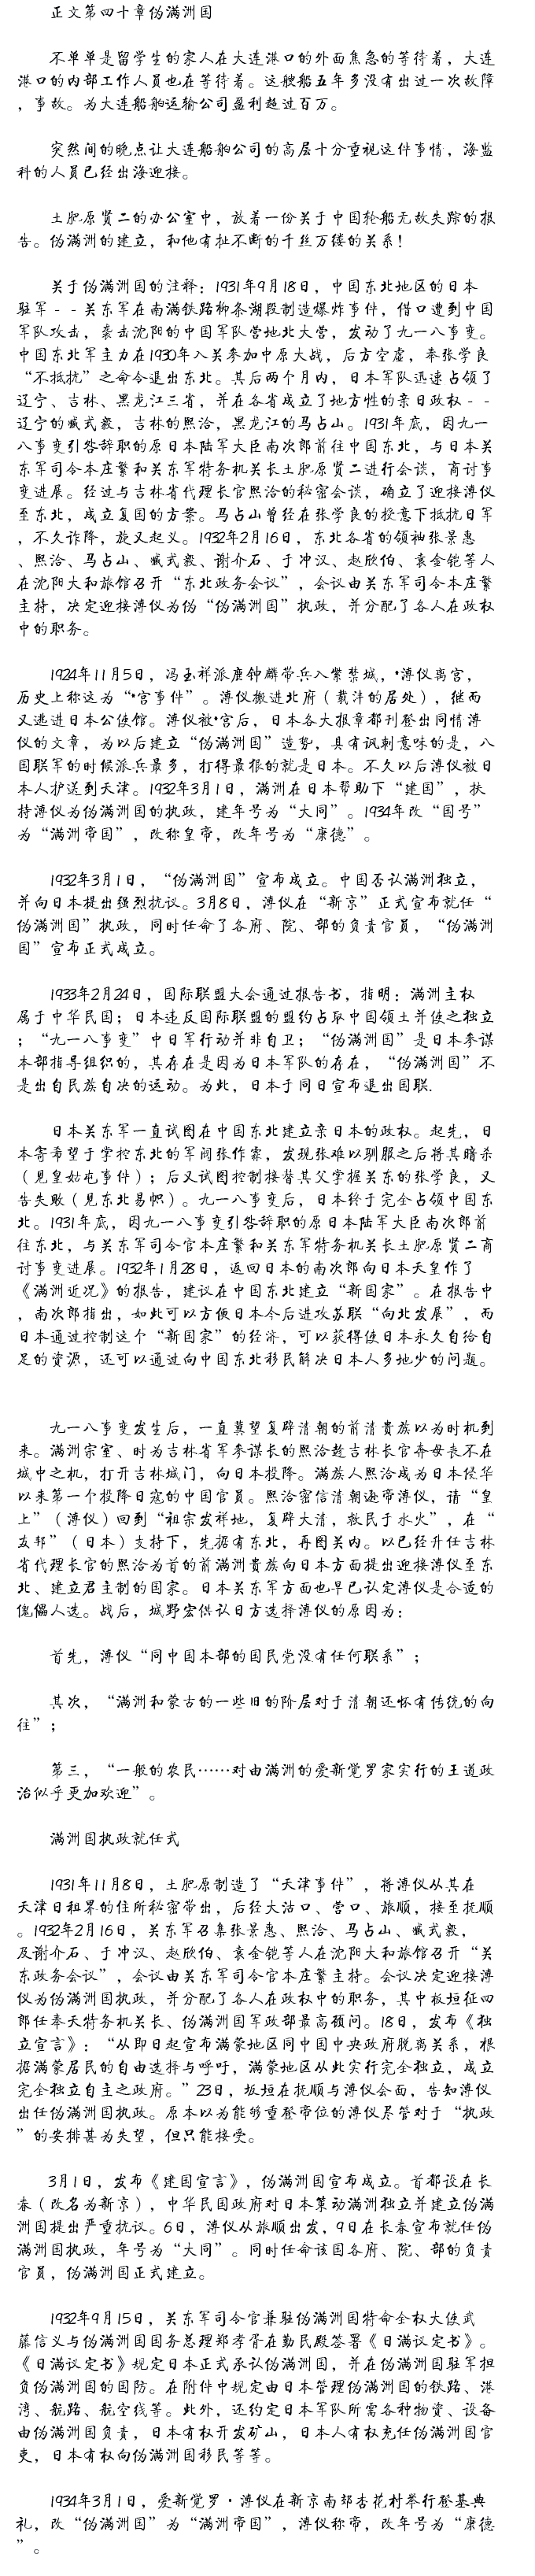 正文第四十章伪满洲国
不单单是留学生的家人在大连港口的外面焦急的等待着，大连
港口的内部工作人员也在等待着。这艘船五年多没有出过一次故障
，事故。为大连船舶运输公司盈利超过百万。
突然间的晚点让大连船舶公司的高层十分重视这件事情，海监
科的人员已经出海迎接。
土肥原贤二的办公室中，放着一份关于中国轮船无故失踪的报
告。伪满洲的建立，和他有扯不断的千丝万缕的关系！
关于伪满洲国的注释：1931年9月18日，中国东北地区的日本
驻军--关东军在南满铁路柳条湖段制造爆炸事件，借口遭到中国
军队攻击，袭击沈阳的中国军队营地北大营，发动了九一八事变。
中国东北军主力在1930年入关参加中原大战，后方空虚，奉张学良
“不抵抗”之命令退出东北。其后两个月内，日本军队迅速占领了
辽宁、吉林、黑龙江三省，并在各省成立了地方性的亲日政权--
辽宁的臧式毅，吉林的熙洽，黑龙江的马占山。1931年底，因九一
八事变引咎辞职的原日本陆军大臣南次郎前往中国东北，与日本关
东军司令本庄繁和关东军特务机关长土肥原贤二进行会谈，商讨事
变进展。经过与吉林省代理长官熙洽的秘密会谈，确立了迎接溥仪
至东北，成立复国的方案。马占山曾经在张学良的授意下抵抗日军
，不久诈降，旋又起义。1932年2月16日，东北各省的领袖张景惠
、熙洽、马占山、臧式毅、谢介石、于冲汉、赵欣伯、袁金铠等人
在沈阳大和旅馆召开“东北政务会议”，会议由关东军司令本庄繁
主持，决定迎接溥仪为伪“伪满洲国”执政，并分配了各人在政权
中的职务。
1924年11月5日，冯玉祥派鹿钟麟带兵入紫禁城，·溥仪离宫，
历史上称这为“·宫事件”。溥仪搬进北府（载沣的居处），继而
又逃进日本公使馆。溥仪被·宫后，日本各大报章都刊登出同情溥
仪的文章，为以后建立“伪满洲国”造势，具有讽刺意味的是，八
国联军的时候派兵最多，打得最狠的就是日本。不久以后溥仪被日
本人护送到天津。1932年3月1日，满洲在日本帮助下“建国”，扶
持溥仪为伪满洲国的执政，建年号为“大同”。1934年改“国号”
为“满洲帝国”，改称皇帝，改年号为“康德”。
1932年3月1日，“伪满洲国”宣布成立。中国否认满洲独立，
并向日本提出强烈抗议。3月8日，溥仪在“新京”正式宣布就任“
伪满洲国”执政，同时任命了各府、院、部的负责官员，“伪满洲
国”宣布正式成立。
1933年2月24日，国际联盟大会通过报告书，指明：满洲主权
属于中华民国；日本违反国际联盟的盟约占取中国领土并使之独立
；“九一八事变”中日军行动并非自卫；“伪满洲国”是日本参谋
本部指导组织的，其存在是因为日本军队的存在，“伪满洲国”不
是出自民族自决的运动。为此，日本于同日宣布退出国联.
日本关东军一直试图在中国东北建立亲日本的政权。起先，日
本寄希望于掌控东北的军阀张作霖，发现张难以驯服之后将其暗杀
（见皇姑屯事件）；后又试图控制接替其父掌握关东的张学良，又
告失败（见东北易帜）。九一八事变后，日本终于完全占领中国东
北。1931年底，因九一八事变引咎辞职的原日本陆军大臣南次郎前
往东北，与关东军司令官本庄繁和关东军特务机关长土肥原贤二商
讨事变进展。1932年1月28日，返回日本的南次郎向日本天皇作了
《满洲近况》的报告，建议在中国东北建立“新国家”。在报告中
，南次郎指出，如此可以方便日本今后进攻苏联“向北发展”，而
日本通过控制这个“新国家”的经济，可以获得使日本永久自给自
足的资源，还可以通过向中国东北移民解决日本人多地少的问题。
九一八事变发生后，一直冀望复辟清朝的前清贵族以为时机到
来。满洲宗室、时为吉林省军参谋长的熙洽趁吉林长官奔母丧不在
城中之机，打开吉林城门，向日本投降。满族人熙洽成为日本侵华
以来第一个投降日寇的中国官员。熙洽密信清朝逊帝溥仪，请“皇
上”（溥仪）回到“祖宗发祥地，复辟大清，救民于水火”，在“
友邦”（日本）支持下，先据有东北，再图关内。以已经升任吉林
省代理长官的熙洽为首的前满洲贵族向日本方面提出迎接溥仪至东
北、建立君主制的国家。日本关东军方面也早已认定溥仪是合适的
傀儡人选。战后，城野宏供认日方选择溥仪的原因为：
首先，溥仪“同中国本部的国民党没有任何联系”；
其次，“满洲和蒙古的一些旧的阶层对于清朝还怀有传统的向
往”；
第三，“一般的农民……对由满洲的爱新觉罗家实行的王道政
治似乎更加欢迎”。
满洲国执政就任式
1931年11月8日，土肥原制造了“天津事件”，将溥仪从其在
天津日租界的住所秘密带出，后经大沽口、营口、旅顺，接至抚顺
。1932年2月16日，关东军召集张景惠、熙洽、马占山、臧式毅，
及谢介石、于冲汉、赵欣伯、袁金铠等人在沈阳大和旅馆召开“关
东政务会议”，会议由关东军司令官本庄繁主持。会议决定迎接溥
仪为伪满洲国执政，并分配了各人在政权中的职务，其中板垣征四
郎任奉天特务机关长、伪满洲国军政部最高顾问。18日，发布《独
立宣言》：“从即日起宣布满蒙地区同中国中央政府脱离关系，根
据满蒙居民的自由选择与呼吁，满蒙地区从此实行完全独立，成立
完全独立自主之政府。”23日，板垣在抚顺与溥仪会面，告知溥仪
出任伪满洲国执政。原本以为能够重登帝位的溥仪尽管对于“执政
”的安排甚为失望，但只能接受。
3月1日，发布《建国宣言》，伪满洲国宣布成立。首都设在长
春（改名为新京），中华民国政府对日本策动满洲独立并建立伪满
洲国提出严重抗议。6日，溥仪从旅顺出发，9日在长春宣布就任伪
满洲国执政，年号为“大同”。同时任命该国各府、院、部的负责
官员，伪满洲国正式建立。
1932年9月15日，关东军司令官兼驻伪满洲国特命全权大使武
藤信义与伪满洲国国务总理郑孝胥在勤民殿签署《日满议定书》。
《日满议定书》规定日本正式承认伪满洲国，并在伪满洲国驻军担
负伪满洲国的国防。在附件中规定由日本管理伪满洲国的铁路、港
湾、航路、航空线等。此外，还约定日本军队所需各种物资、设备
由伪满洲国负责，日本有权开发矿山，日本人有权充任伪满洲国官
吏，日本有权向伪满洲国移民等等。
1934年3月1日，爱新觉罗·溥仪在新京南郊杏花村举行登基典
礼，改“伪满洲国”为“满洲帝国”，溥仪称帝，改年号为“康德
”。